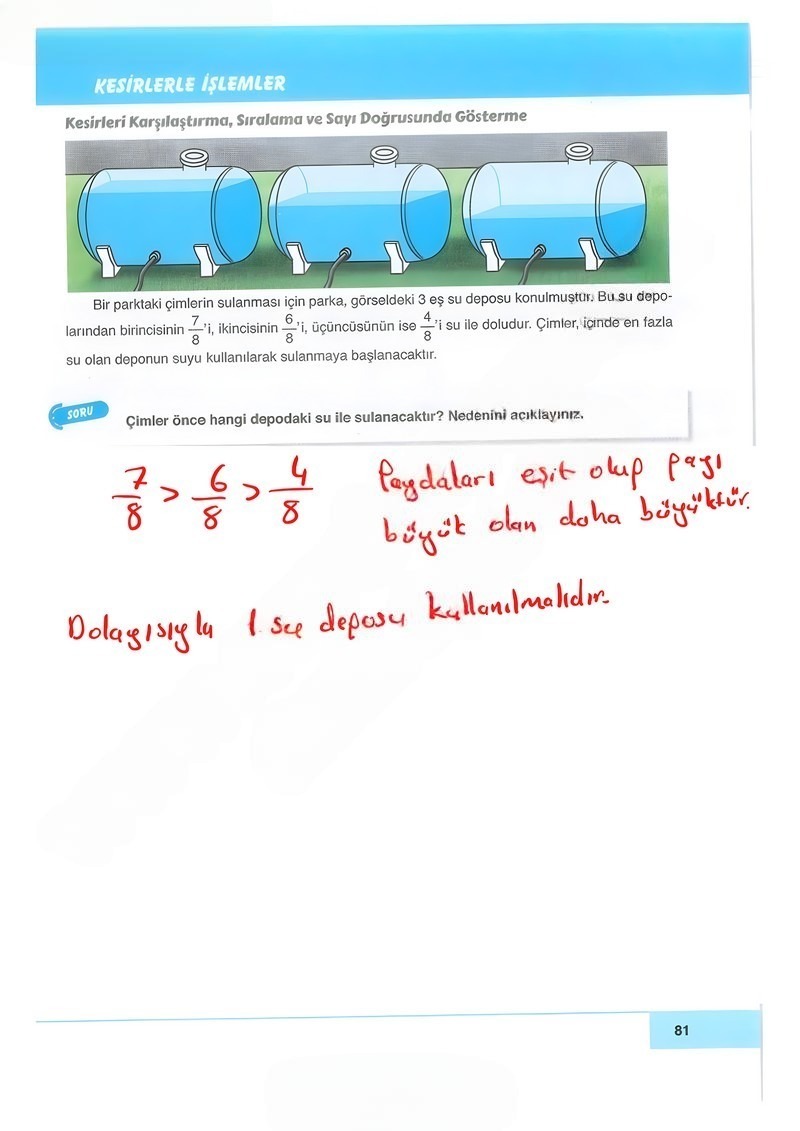 KESİRLERLE İŞLEMLER
Kesirleri Karşılaştırma, Sıralama ve Sayı Doğrusunda Gösterme
Bir parktaki çimlerin sulanması için parka, görseldeki 3 eş su deposu konulmuştur. Bu su depo-
larından birincisinin 7/8'i, ikincisinin 6/8'i, üçüncüsünün ise 4/8'i su ile doludur. Çimler, içinde en fazla
su olan deponun suyu kullanılarak sulanmaya başlanacaktır.
SORU
Çimler önce hangi depodaki su ile sulanacaktır? Nedenini açıklayınız.
7/8 > 6/8 > 4/8 Paydaları eşit olup payı
büyük olan daha büyüktür.
Dolayısıyla 1. su deposu kullanılmalıdır.
81